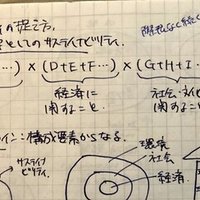 の捉え方.
としての サステイナビリティ.
限りなく続く
…) × (D+E+F…) × (G+H+I
経済に
関すること.
社会・文化
関すること.
イン：構成要素からなる.
サステイナ
ビリティ.
環境
社会
経済